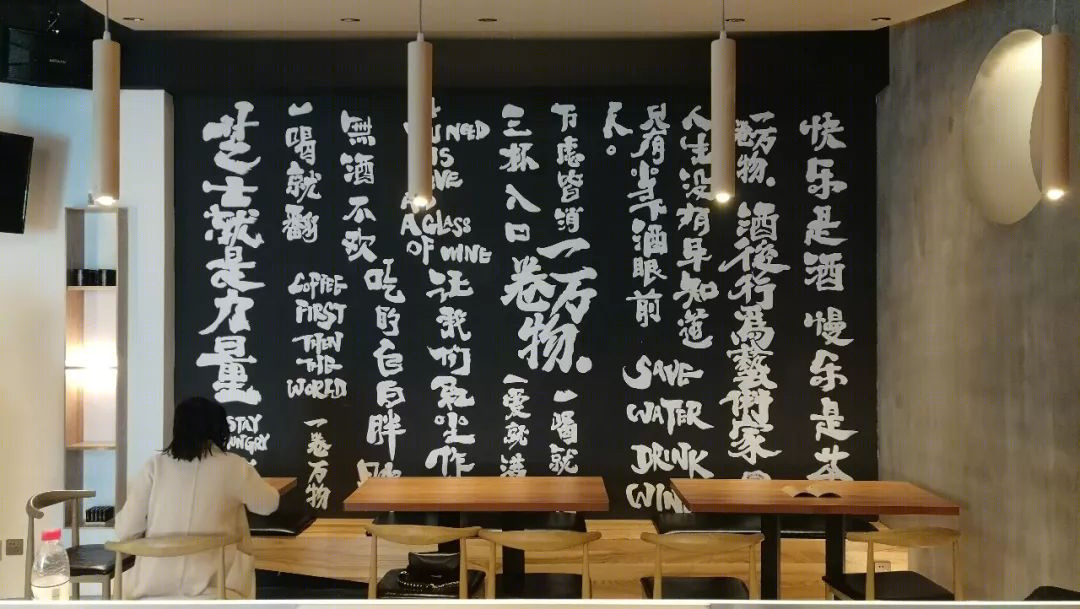 快乐是酒
慢乐是茶
一卷万物.
酒後行為藝術家
人生没有早知道
只有当下酒眼前
SAVE
WATER
DRINK
WINE
万虑皆消
三杯入口
一卷万物.
一喝就
一爱就
YOU NEED
IS
LOVE
AND
A GLASS
OF WINE
让我们
無酒不欢
吃的白白胖
一喝就翻
COFFEE
FIRST
THEN
THE
WORLD
一卷万物
芝士就是力量
STAY
HUNGRY